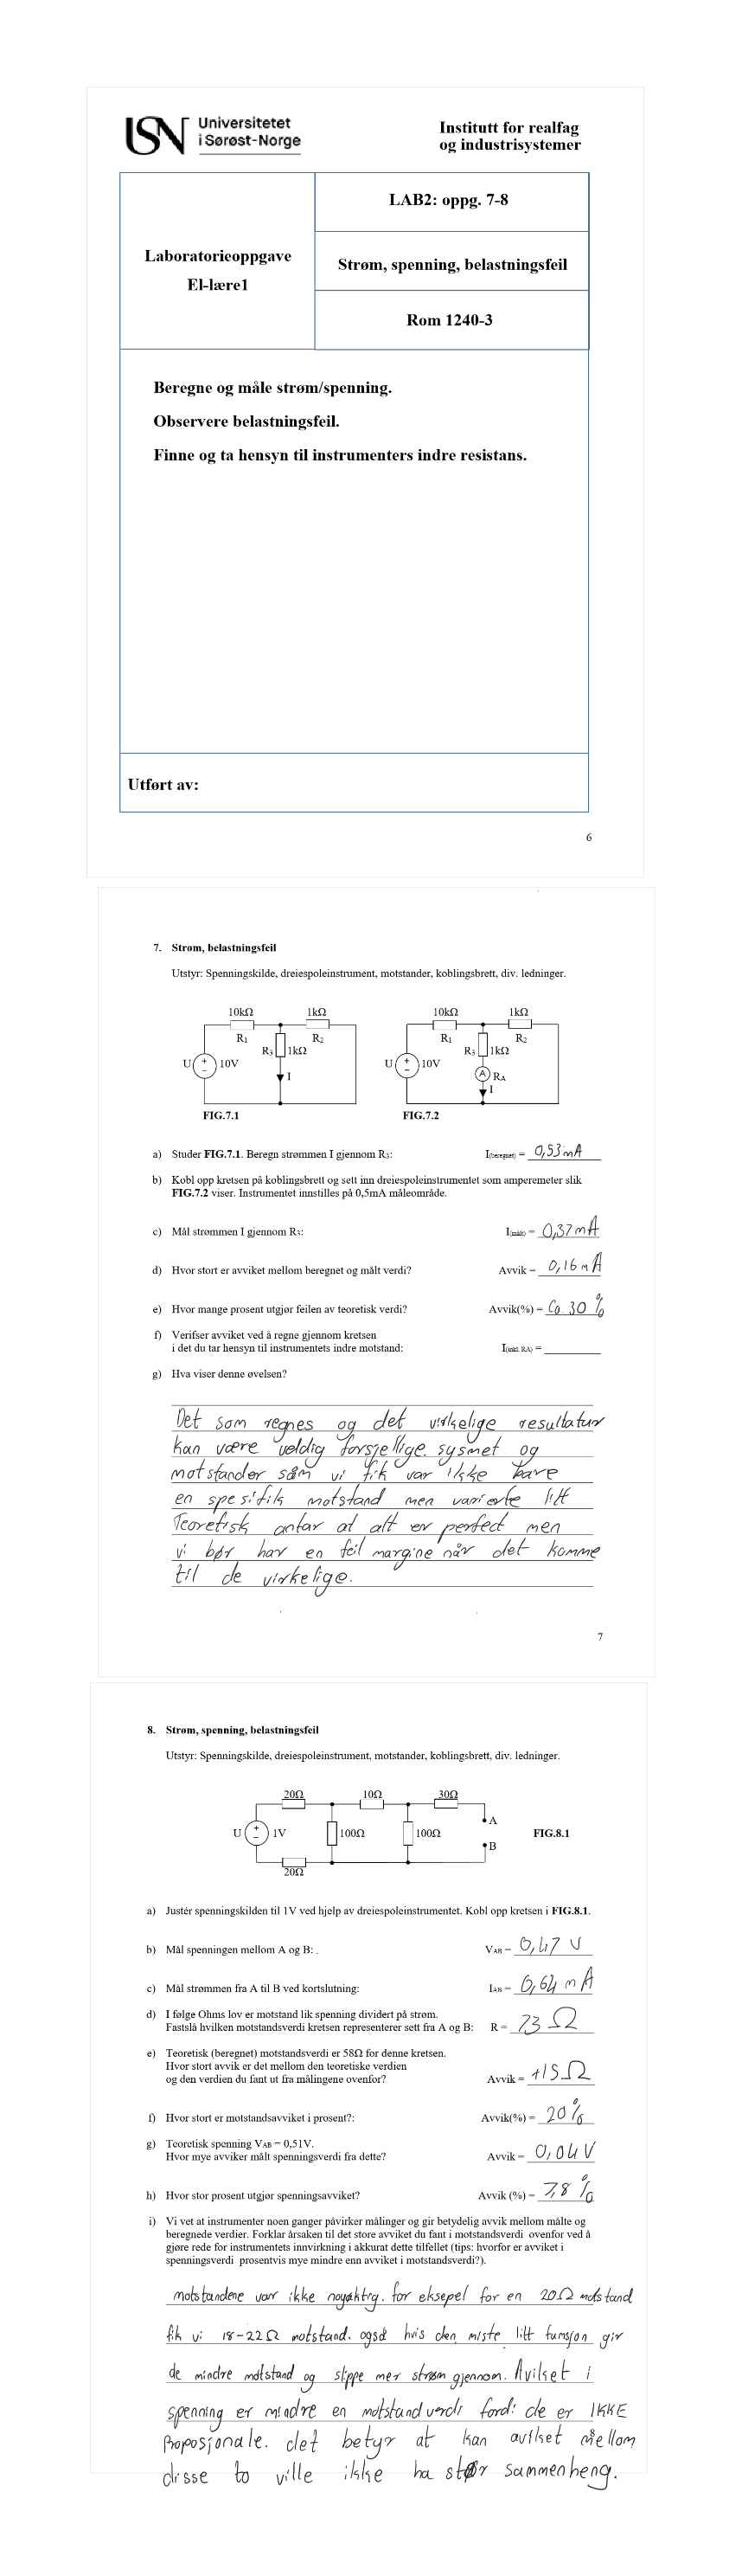 USN Universitetet
i Sørøst-Norge
Institutt for realfag
og industrisystemer
Laboratorieoppgave
El-lære1
LAB2: oppg. 7-8
Strøm, spenning, belastningsfeil
Rom 1240-3
Beregne og måle strøm/spenning.
Observere belastningsfeil.
Finne og ta hensyn til instrumenters indre resistans.
Utført av:
6
7. Strøm, belastningsfeil
Utstyr: Spenningskilde, dreiespoleinstrument, motstander, koblingsbrett, div. ledninger.
10kΩ 1kΩ 10kΩ 1kΩ
R1 R2 R1 R2
R3 1kΩ R3 1kΩ
U + − 10V I U + − 10V A RA I
FIG.7.1 FIG.7.2
a) Studer FIG.7.1. Beregn strømmen I gjennom R3: I(beregnet) = 0,53 mA
b) Kobl opp kretsen på koblingsbrett og sett inn dreiespoleinstrumentet som amperemeter slik
FIG.7.2 viser. Instrumentet innstilles på 0,5mA måleområde.
c) Mål strømmen I gjennom R3: I(målt) = 0,37 mA
d) Hvor stort er avviket mellom beregnet og målt verdi? Avvik = 0,16 mA
e) Hvor mange prosent utgjør feilen av teoretisk verdi? Avvik(%) = Ca 30 %
f) Verifser avviket ved å regne gjennom kretsen
i det du tar hensyn til instrumentets indre motstand: I(inkl. RA) =
g) Hva viser denne øvelsen?
Det som regnes og det virkelige resultatur
kan være veldig forsjellige. sysmet og
motstander såm vi fik var ikke bare
en spesifik motstand men varierte litt
Teoretisk antar at alt er perfect men
vi bør har en feil margine når det komme
til de virkelige.
7
8. Strøm, spenning, belastningsfeil
Utstyr: Spenningskilde, dreiespoleinstrument, motstander, koblingsbrett, div. ledninger.
20Ω 10Ω 30Ω
A
U + − 1V 100Ω 100Ω FIG.8.1
B
20Ω
a) Justér spenningskilden til 1V ved hjelp av dreiespoleinstrumentet. Kobl opp kretsen i FIG.8.1.
b) Mål spenningen mellom A og B: . VAB = 0,47 V
c) Mål strømmen fra A til B ved kortslutning: IAB = 0,64 mA
d) I følge Ohms lov er motstand lik spenning dividert på strøm.
Fastslå hvilken motstandsverdi kretsen representerer sett fra A og B: R = 73 Ω
e) Teoretisk (beregnet) motstandsverdi er 58Ω for denne kretsen.
Hvor stort avvik er det mellom den teoretiske verdien
og den verdien du fant ut fra målingene ovenfor? Avvik = +15 Ω
f) Hvor stort er motstandsavviket i prosent?: Avvik(%) = 20 %
g) Teoretisk spenning VAB = 0,51V.
Hvor mye avviker målt spenningsverdi fra dette? Avvik = 0,04 V
h) Hvor stor prosent utgjør spenningsavviket? Avvik (%) = 7,8 %
i) Vi vet at instrumenter noen ganger påvirker målinger og gir betydelig avvik mellom målte og
beregnede verdier. Forklar årsaken til det store avviket du fant i motstandsverdi ovenfor ved å
gjøre rede for instrumentets innvirkning i akkurat dette tilfellet (tips: hvorfor er avviket i
spenningsverdi prosentvis mye mindre enn avviket i motstandsverdi?).
motstandene var ikke nøyaktig. for eksepel for en 20Ω motstand
fik vi 18-22Ω motstand. også hvis den miste litt funsjon gir
de mindre motstand og slippe mer strøm gjennom. Avilket i
spenning er mindre en motstand verdi fordi de er IKKE
Proposjonale. det betyr at kan avilket mellom
disse to ville ikke ha stør sammenheng.